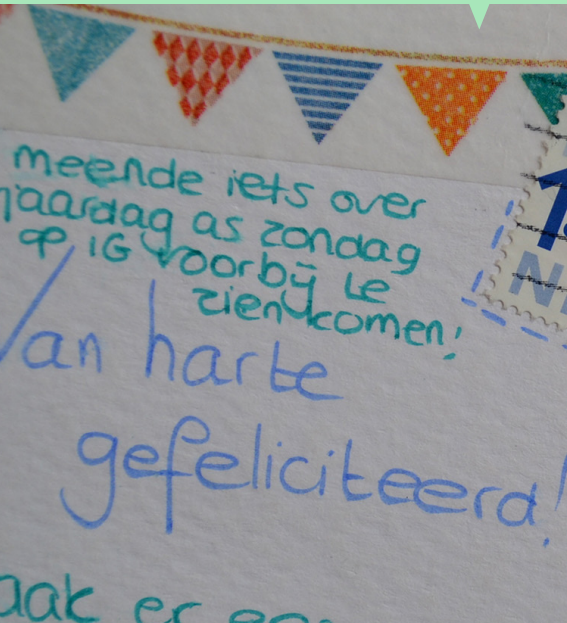 meende iets over
jaardag as zondag
op IG voorbij te
zien komen!
Van harte
gefeliciteerd!
aak er
1
N